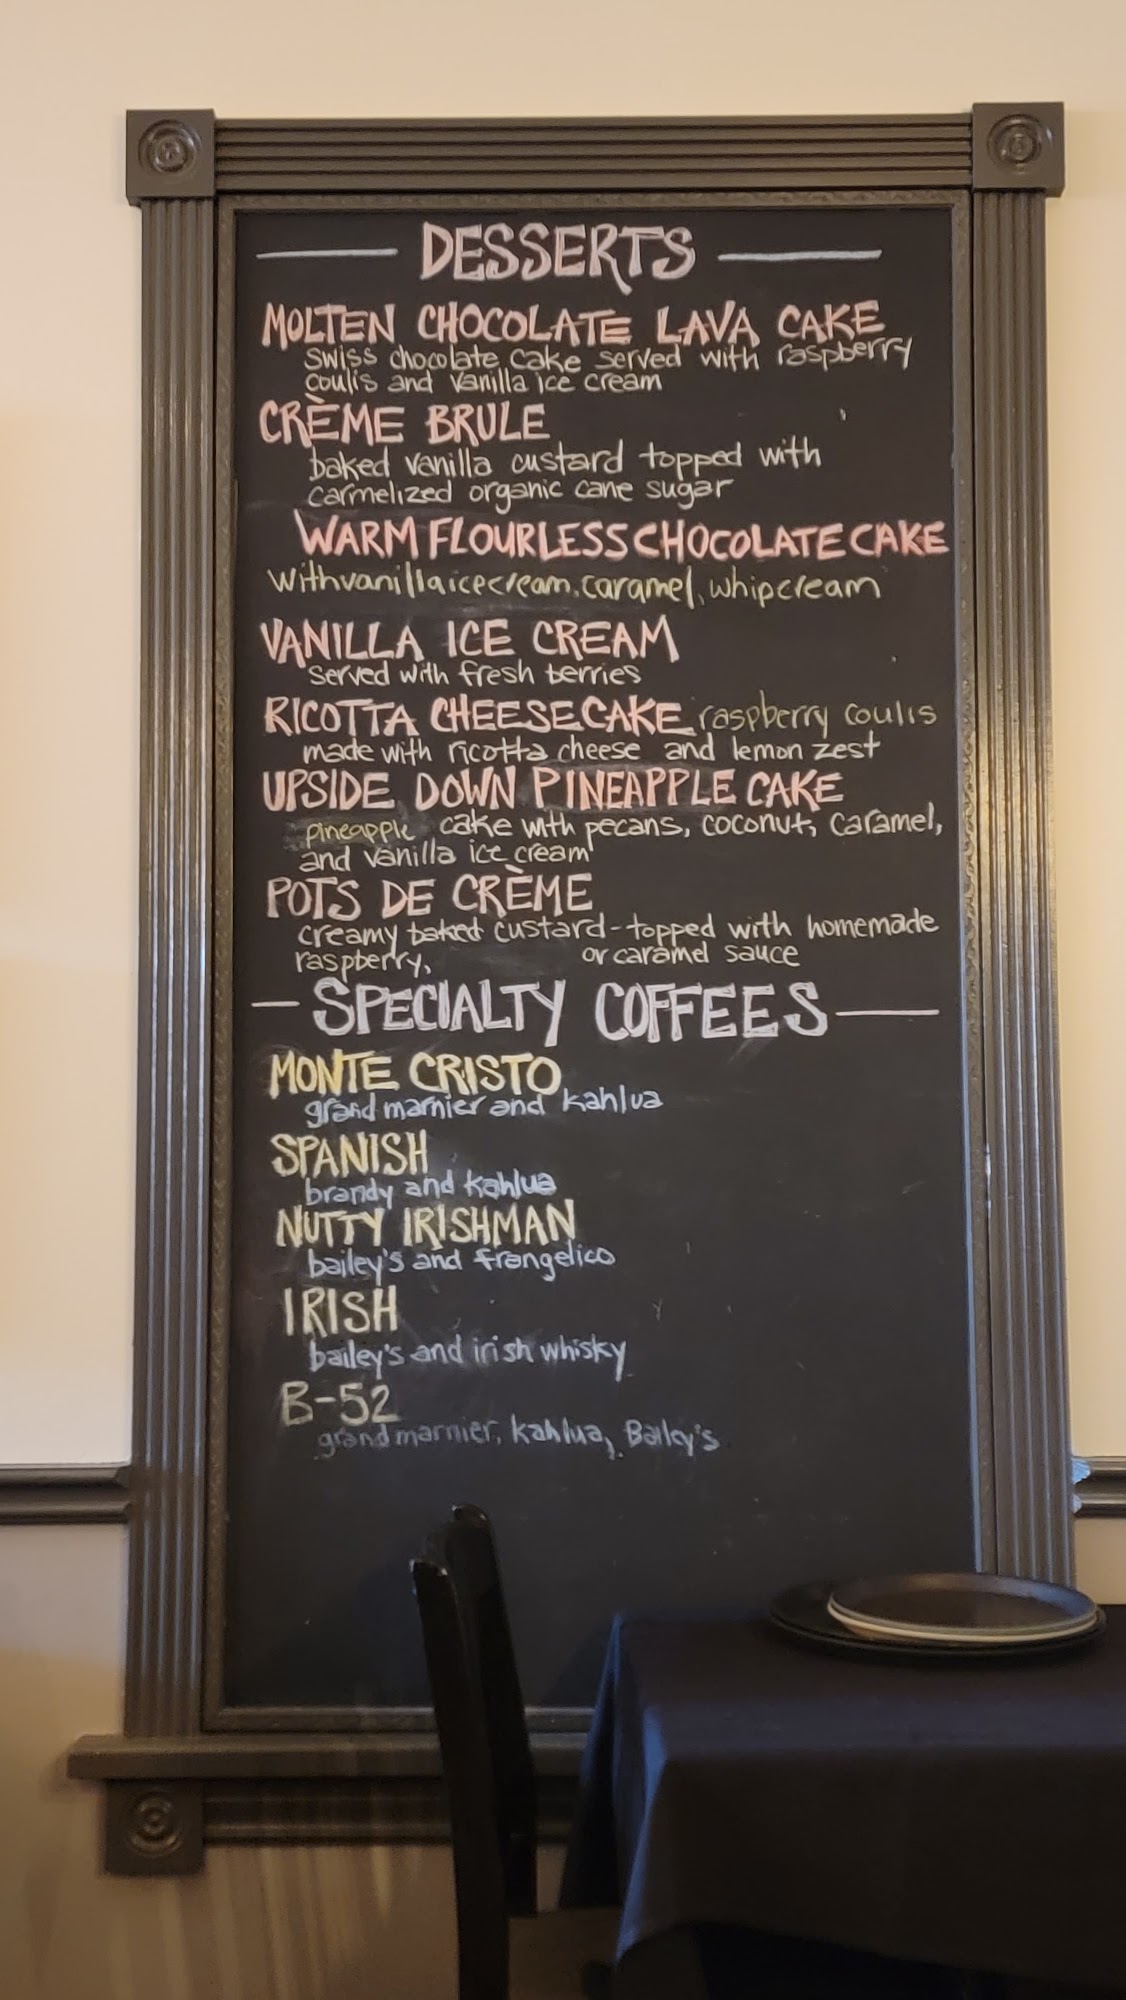 DESSERTS
MOLTEN CHOCOLATE LAVA CAKE
swiss chocolate cake served with raspberry
coulis and vanilla ice cream
CRÈME BRULE
baked vanilla custard topped with
carmelized organic cane sugar
WARM FLOURLESS CHOCOLATE CAKE
with vanilla ice cream, caramel, whip cream
VANILLA ICE CREAM
served with fresh berries
RICOTTA CHEESECAKE raspberry coulis
made with ricotta cheese and lemon zest
UPSIDE DOWN PINEAPPLE CAKE
pineapple cake with pecans, coconut, caramel,
and vanilla ice cream
POTS DE CRÈME
creamy baked custard - topped with homemade
raspberry, or caramel sauce
SPECIALTY COFFEES
MONTE CRISTO
grand marnier and kahlua
SPANISH
brandy and kahlua
NUTTY IRISHMAN
bailey's and frangelico
IRISH
bailey's and irish whisky
B-52
grand marnier, kahlua, Bailey's